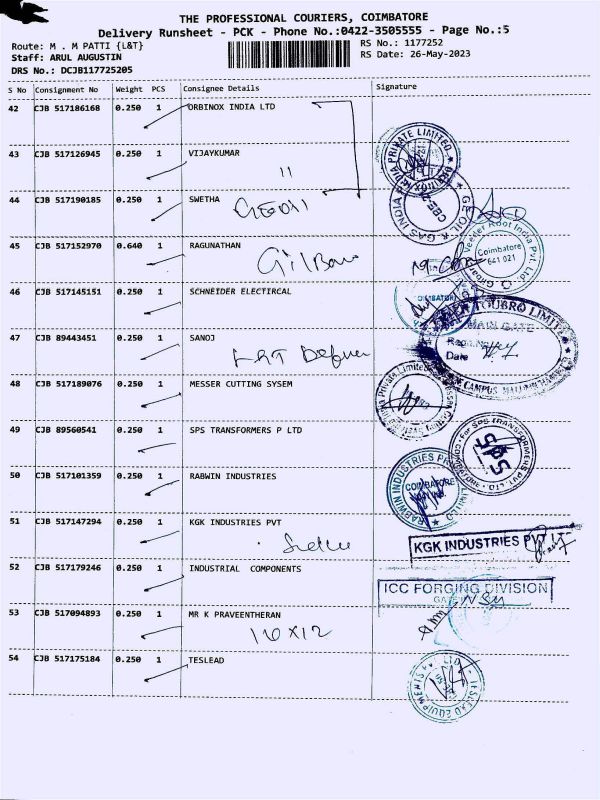 THE PROFESSIONAL COURIERS, COIMBATORE
Delivery Runsheet - PCK - Phone No.:0422-3505555 - Page No.:5
Route: M . M PATTI {L&T}
RS No.: 1177252
Staff: ARUL AUGUSTIN
RS Date: 26-May-2023
DRS No.: DCJB117725205
S No Consignment No Weight PCS Consignee Details Signature
42 CJB 517186168 0.250 1 ORBINOX INDIA LTD
43 CJB 517126945 0.250 1 VIJAYKUMAR
44 CJB 517190185 0.250 1 SWETHA
GEOIL & GAS INDIA
CBE-21
45 CJB 517152970 0.640 1 RAGUNATHAN
Veeder Root India Pvt. Ltd.
Coimbatore
641 021
46 CJB 517145151 0.250 1 SCHNEIDER ELECTIRCAL
47 CJB 89443451 0.250 1 SANOJ
TOUBRO LIMITED
MAIN GATE
Date
48 CJB 517189076 0.250 1 MESSER CUTTING SYSEM
49 CJB 89560541 0.250 1 SPS TRANSFORMERS P LTD
For SPS TRANSFORMERS PVT. LTD.
SPS
50 CJB 517101359 0.250 1 RABWIN INDUSTRIES
RABWIN INDUSTRIES PRIVATE LIMITED
COIMBATORE
51 CJB 517147294 0.250 1 KGK INDUSTRIES PVT
KGK INDUSTRIES PVT
52 CJB 517179246 0.250 1 INDUSTRIAL COMPONENTS
ICC FORGING DIVISION
53 CJB 517094893 0.250 1 MR K PRAVEENTHERAN
16X12
54 CJB 517175184 0.250 1 TESLEAD
TESLEAD EQUIPMENTS PVT. LTD.